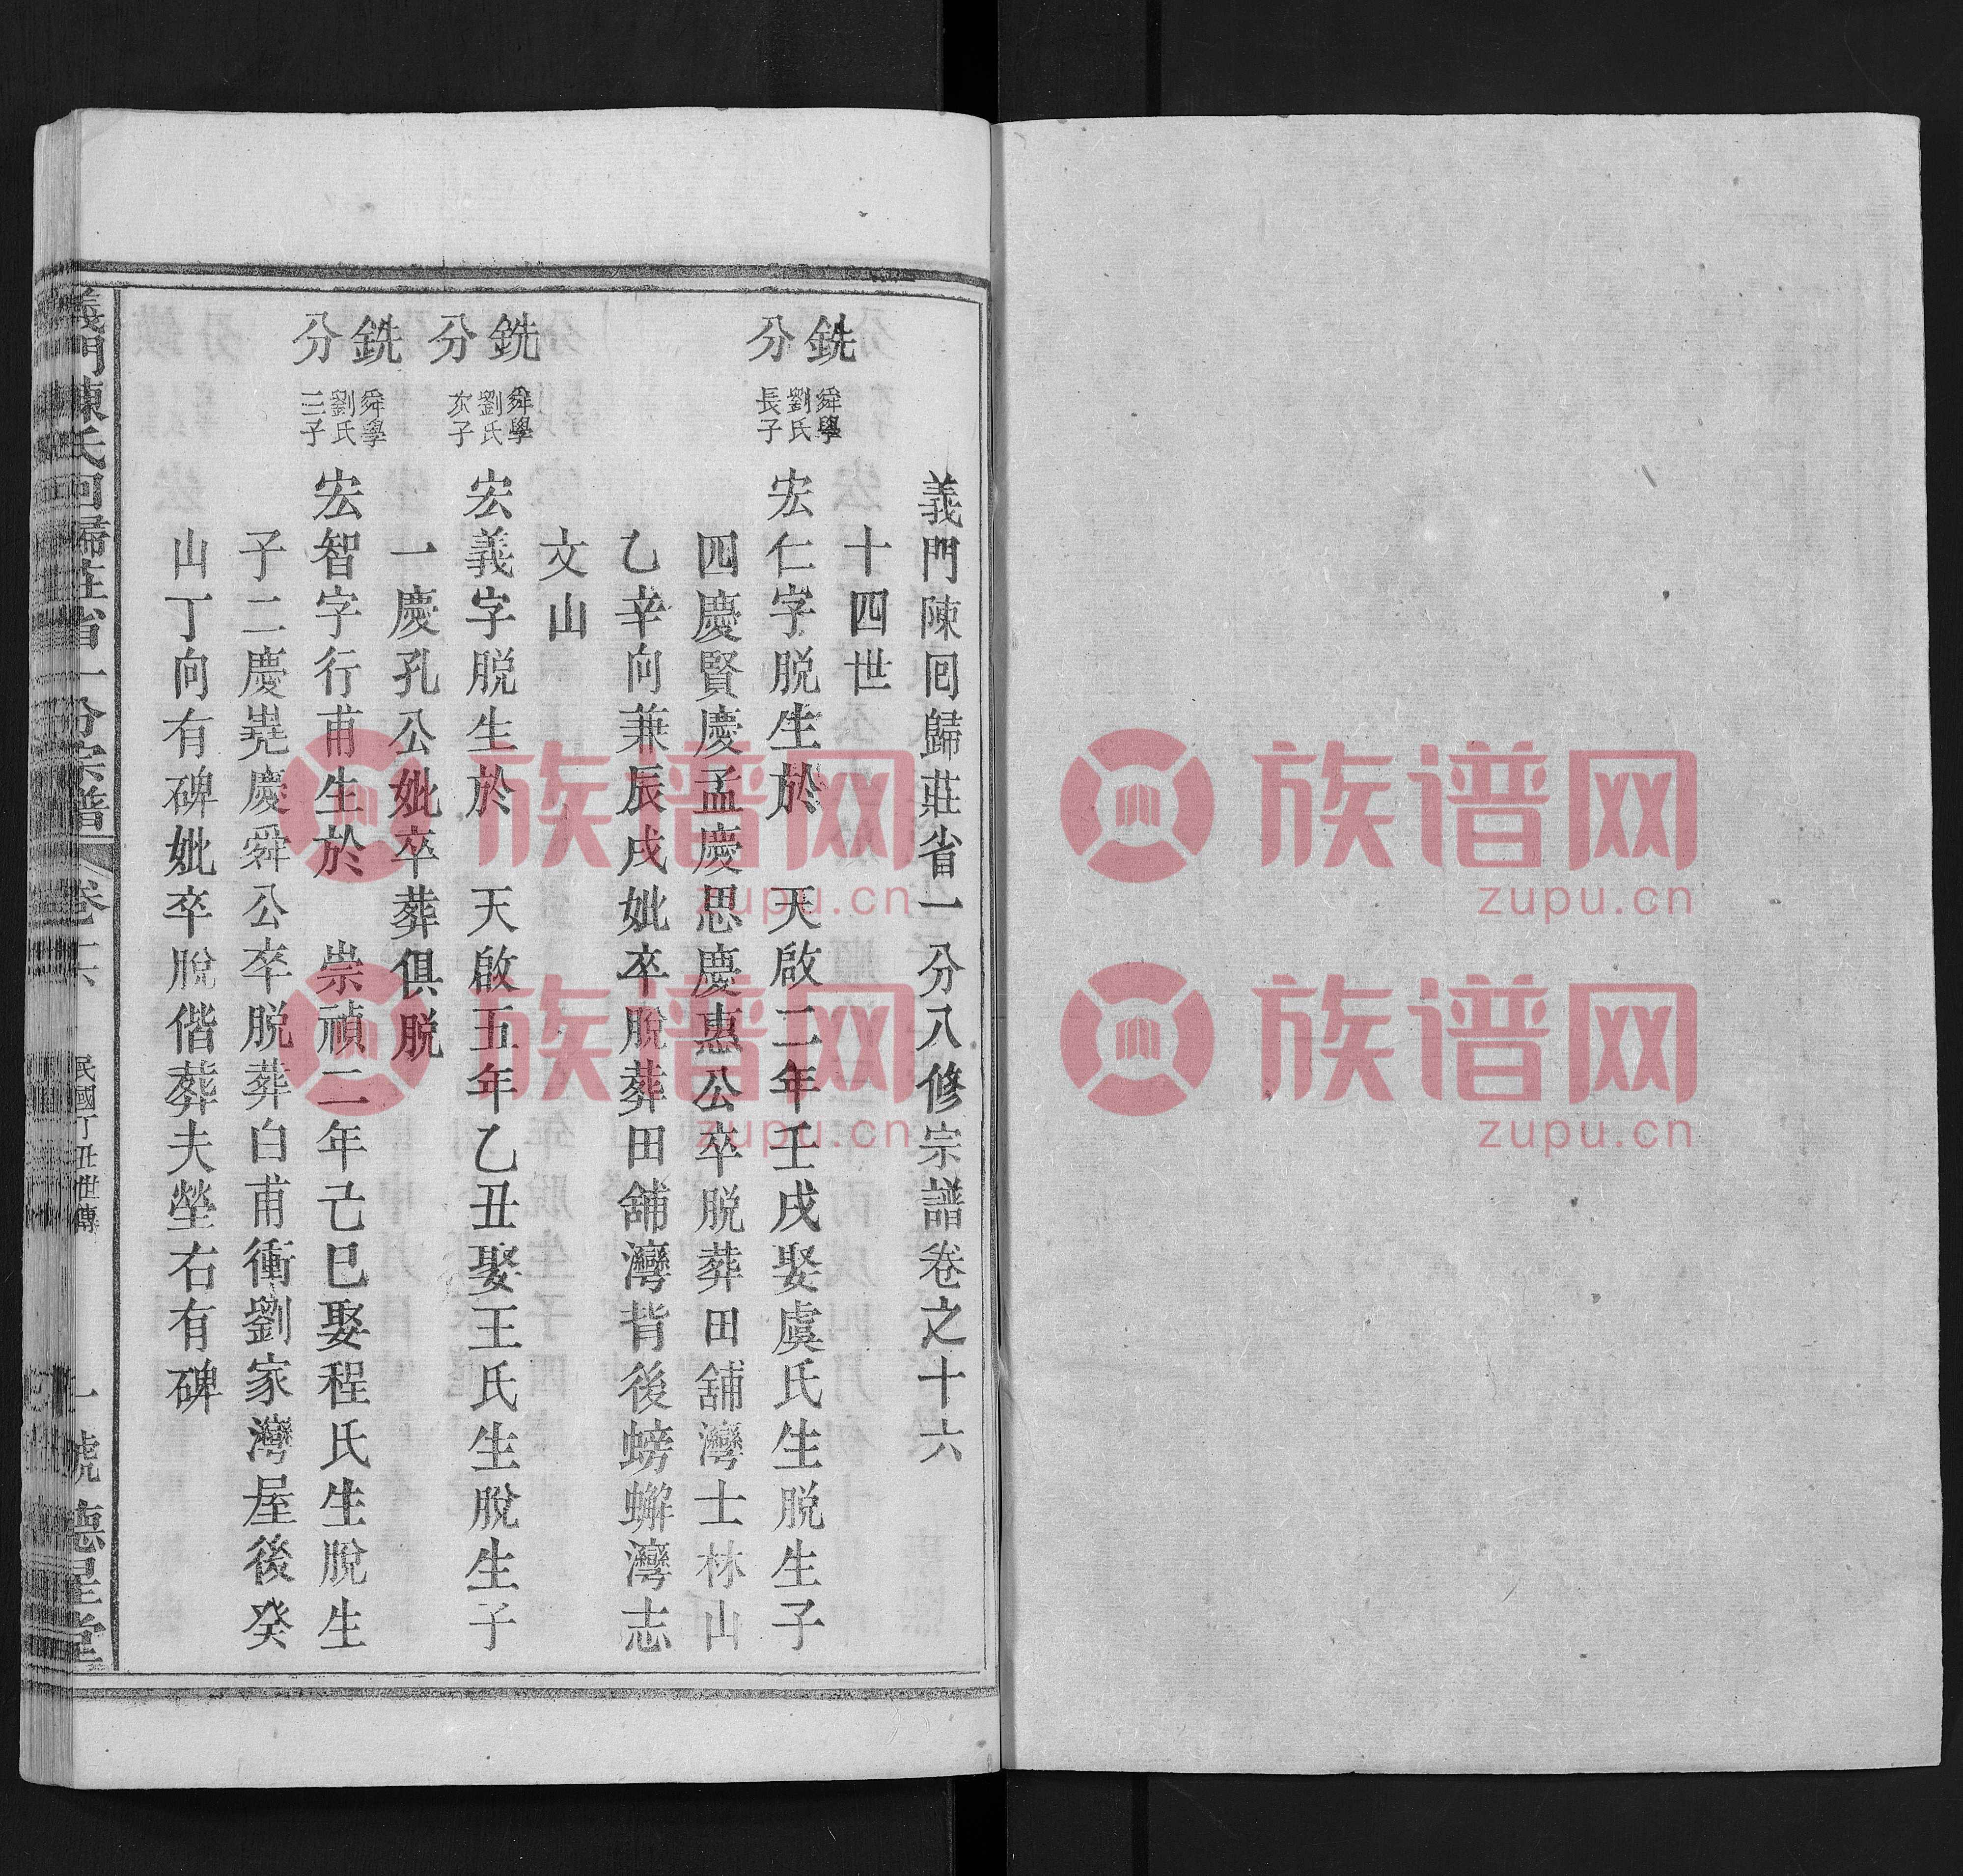 義門陳囘歸莊省一分八修宗譜卷之十六
十四世
銑分
舜學
劉氏
長子
宏仁字脱生於　天啟二年壬戌娶虞氏生脱生子
四慶賢慶孟慶思慶惠公卒脱葬田舖灣士林山
乙辛向兼辰戌妣卒脫葬田舖灣背後螃蠏灣志
文山
銑分
舜學
劉氏
次子
宏義字脱生於　天啟五年乙丑娶王氏生脫生子
一慶孔公妣卒葬俱脱
銑分
舜學
劉氏
三子
宏智字行甫生於　崇禎二年己巳娶程氏生脫生
子二慶堯慶舜公卒脱葬白甫衝劉家灣屋後癸
山丁向有碑妣卒脫偕葬夫塋右有碑
義門陳氏囘歸莊省一分宗譜　卷十六　民國丁丑世傳　一號　德星堂
族谱网
zupu.cn
族谱网
zupu.cn
族谱网
zupu.cn
族谱网
zupu.cn